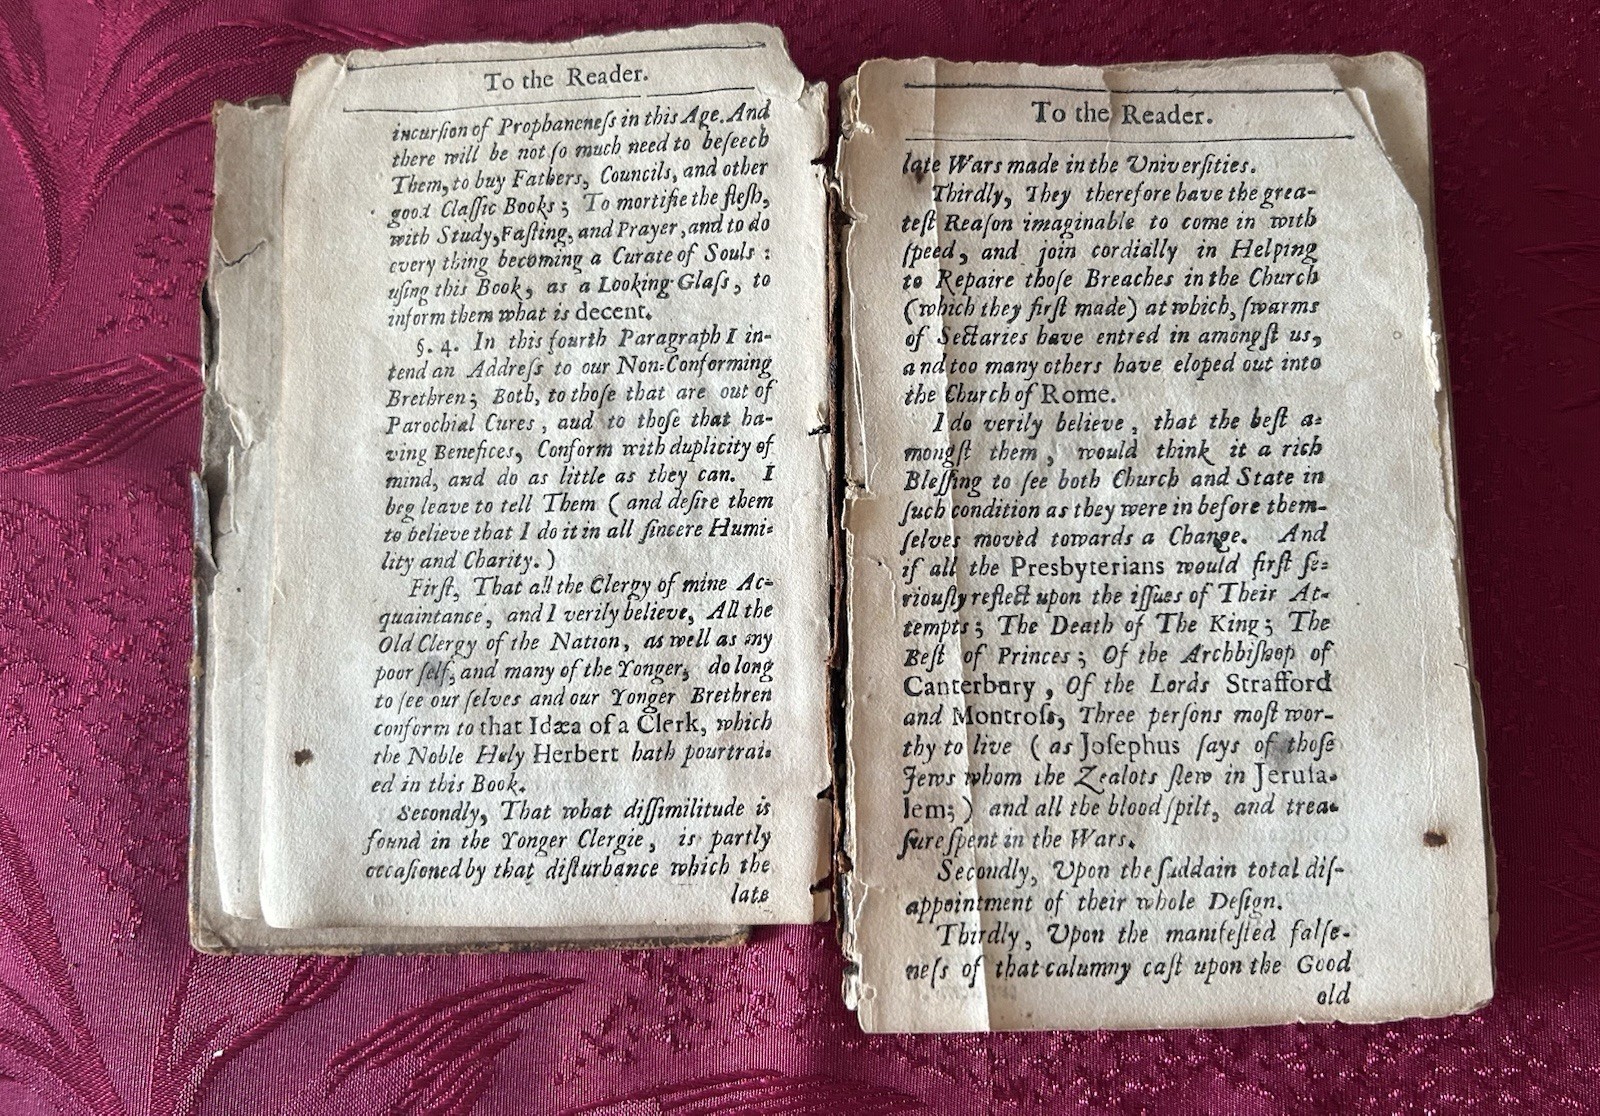 To the Reader.
incurſion of Prophaneneſs in this Age. And
there will be not ſo much need to beſeech
Them, to buy Fathers, Councils, and other
good Claſſic Books; To mortifie the fleſh,
with Study, Faſting, and Prayer, and to do
every thing becoming a Curate of Souls :
uſing this Book, as a Looking-Glaſs, to
inform them what is decent.
§. 4. In this fourth Paragraph I in-
tend an Addreſs to our Non-Conforming
Brethren; Both, to thoſe that are out of
Parochial Cures, aud to thoſe that ha-
ving Benefices, Conform with duplicity of
mind, and do as little as they can. I
beg leave to tell Them ( and deſire them
to believe that I do it in all ſincere Humi-
lity and Charity. )
Firſt, That all the Clergy of mine Ac-
quaintance, and I verily believe, All the
Old Clergy of the Nation, as well as my
poor ſelf, and many of the Yonger, do long
to ſee our ſelves and our Yonger Brethren
conform to that Idæa of a Clerk, which
the Noble Holy Herbert hath pourtrai-
ed in this Book.
Secondly, That what diſſimilitude is
found in the Yonger Clergie, is partly
occaſioned by that diſturbance which the
late
To the Reader.
late Wars made in the Univerſities.
Thirdly, They therefore have the grea-
teſt Reaſon imaginable to come in with
ſpeed, and join cordially in Helping
to Repaire thoſe Breaches in the Church
(which they firſt made) at which, ſwarms
of Sectaries have entred in amongſt us,
and too many others have eloped out into
the Church of Rome.
I do verily believe, that the beſt a-
mongſt them, would think it a rich
Bleſſing to ſee both Church and State in
ſuch condition as they were in before them-
ſelves moved towards a Change. And
if all the Presbyterians would firſt ſe-
riouſly reflect upon the iſſues of Their At-
tempts; The Death of The King; The
Beſt of Princes; Of the Archbiſhop of
Canterbury, Of the Lords Strafford
and Montroſs, Three perſons moſt wor-
thy to live ( as Joſephus ſays of thoſe
Jews whom the Zealots ſlew in Jeruſa-
lem; ) and all the blood ſpilt, and trea-
ſure ſpent in the Wars.
Secondly, Upon the ſuddain total diſ-
appointment of their whole Deſign.
Thirdly, Upon the manifeſted falſe-
neſs of that calumny caſt upon the Good
old